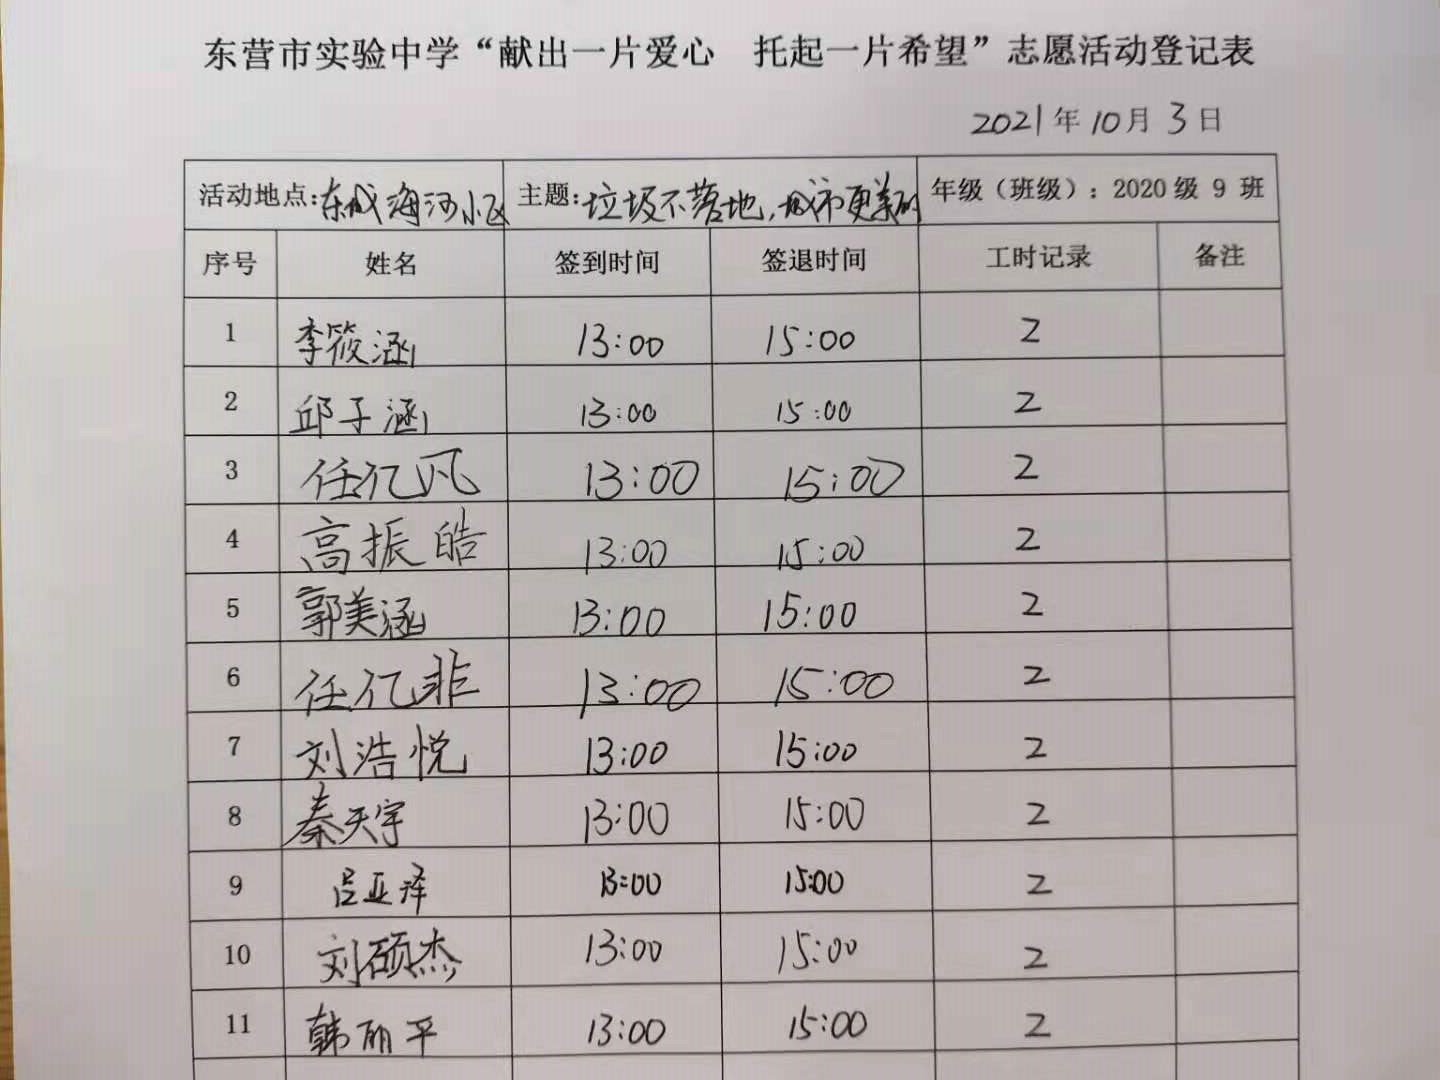 东营市实验中学“献出一片爱心 托起一片希望”志愿活动登记表
2021年10月3日
活动地点:东城海河小区 主题:垃圾不落地,城市更美丽 年级（班级）: 2020级 9 班
序号 姓名 签到时间 签退时间 工时记录 备注
1 李筱涵 13:00 15:00 2
2 邱子涵 13:00 15:00 2
3 任亿凡 13:00 15:00 2
4 高振皓 13:00 15:00 2
5 郭美涵 13:00 15:00 2
6 任亿非 13:00 15:00 2
7 刘浩悦 13:00 15:00 2
8 秦天宇 13:00 15:00 2
9 吕亚泽 13:00 15:00 2
10 刘硕杰 13:00 15:00 2
11 韩丽平 13:00 15:00 2